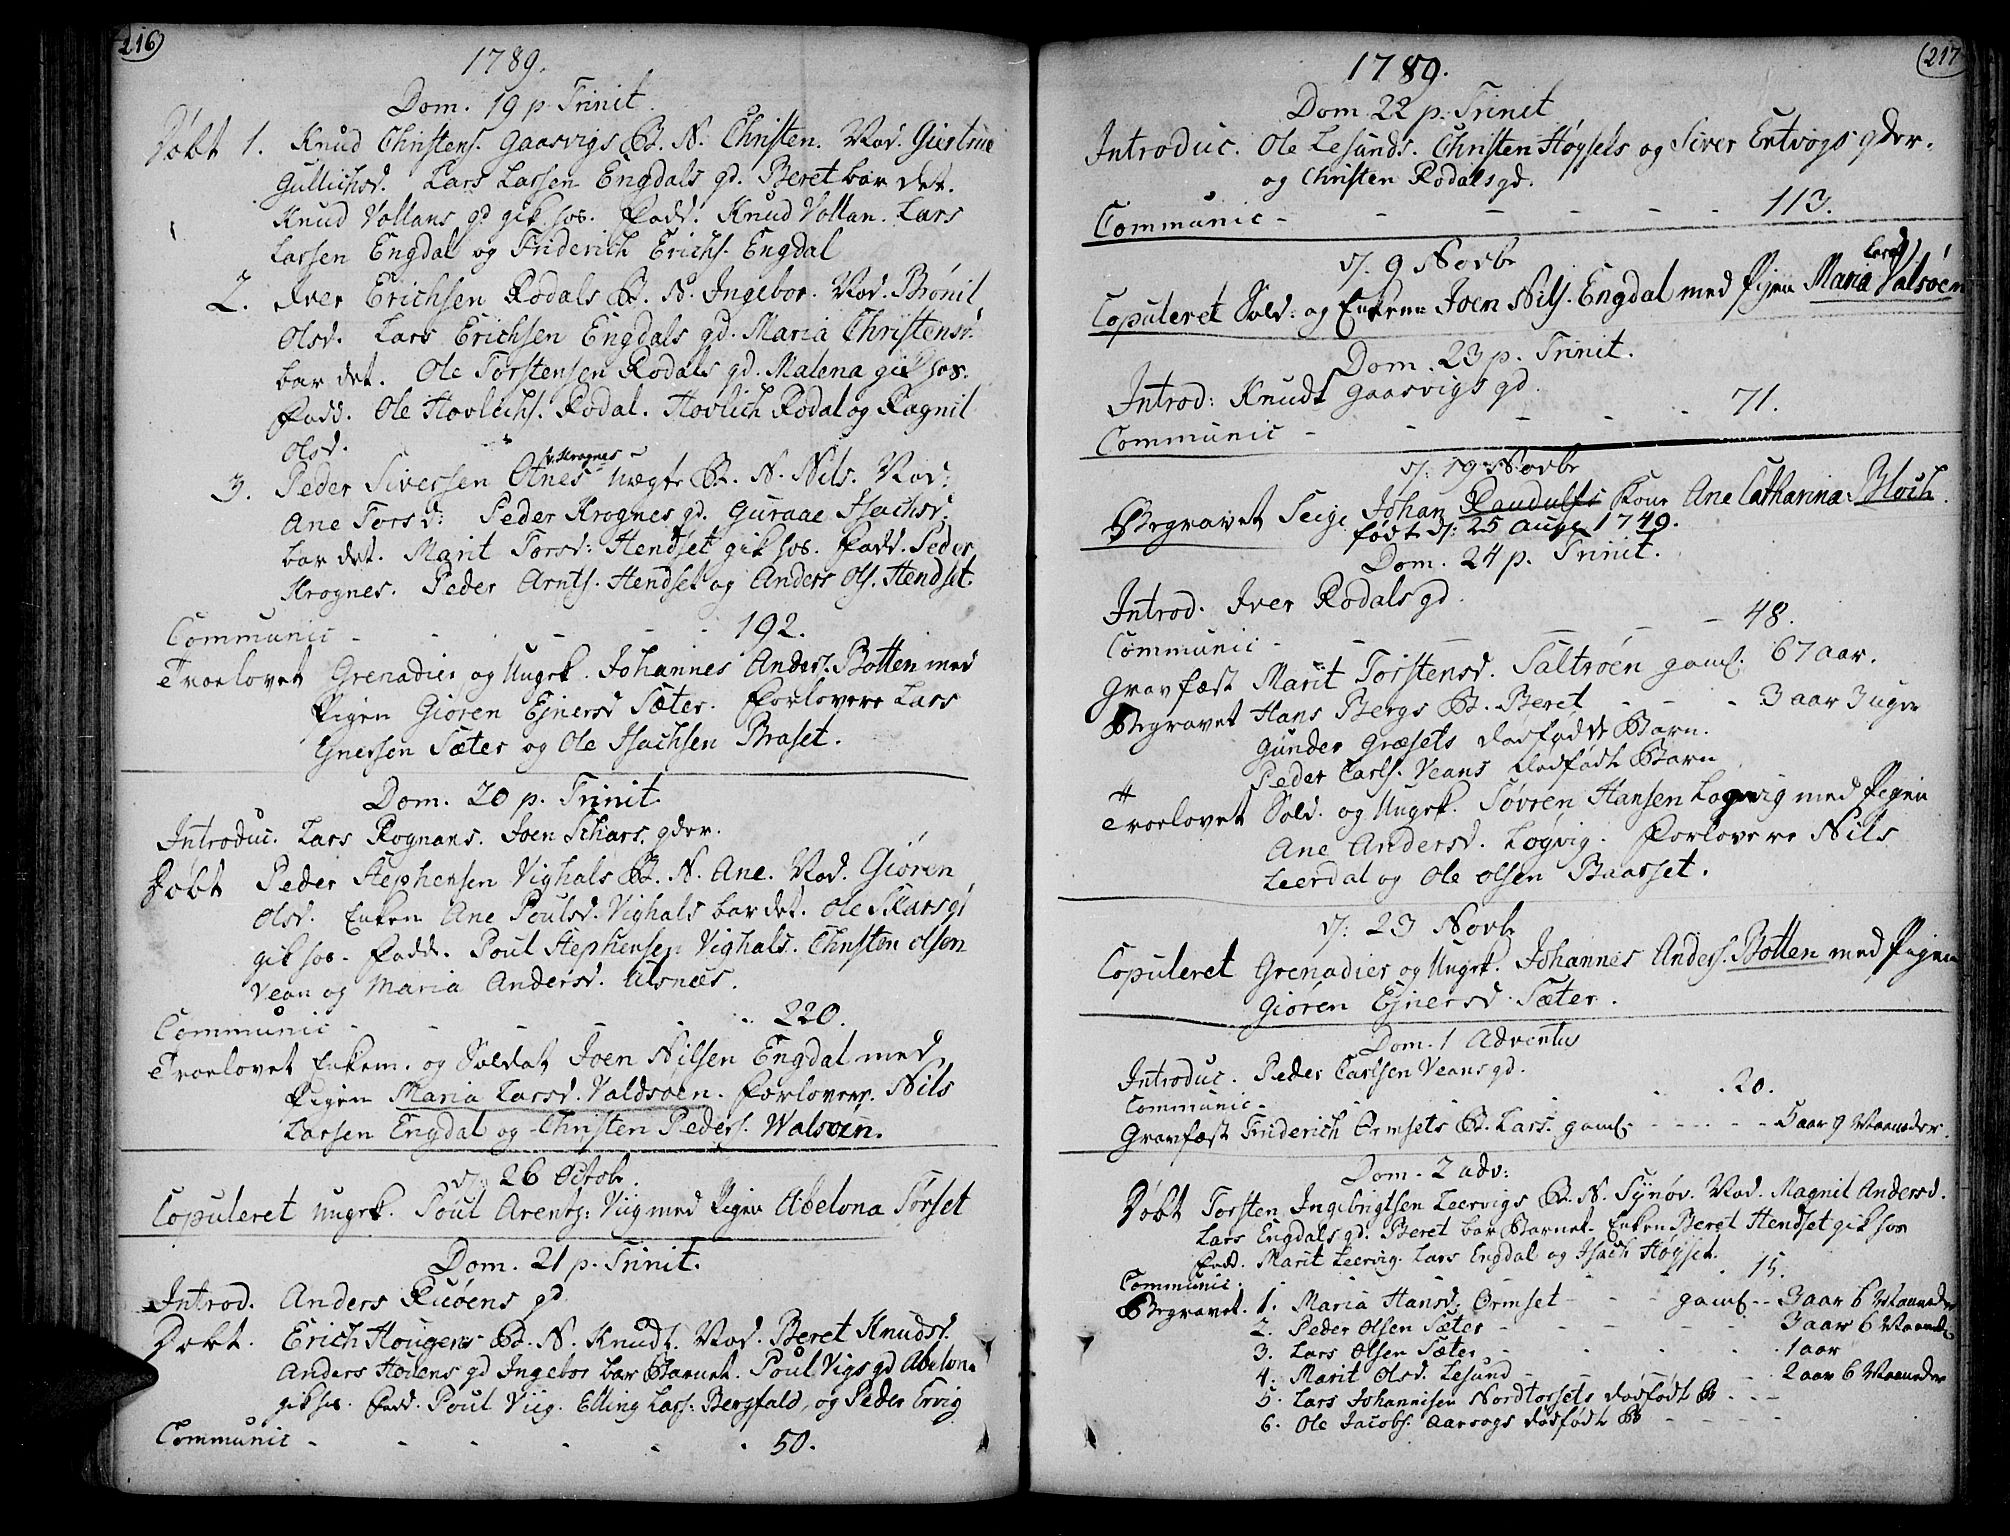 216
1789.
Dom. 19 p. Trinit.
Døbt 1. Knud Christens. Gaasvigs B. N. Christen. Mod. Giertrue
Gullichsd. Lars Larsen Engdals gd. Beret bar det.
Knud Vollans gd gik hos. Fadd. Knud Vollan. Lars
Larsen Engdal og Friderich Erichs. Engdal
2. Iver Erichsen Rodals B. N. Ingebor. Mod. Brønil
Olsd. Lars Erichsen Engdals gd. Maria Christensd.
bar det. Ole Torstensen Rodals gd. Malena gik hos.
Fadd. Ole Hovlichs. Rodal. Hovlich Rodal og Ragnil
Olsd.
v. Krognes
3. Peder Siversen Otnes uægte B. N. Nils. Mod:
Ane Torsd: Peder Krognes gd. Guraae Isachsd.
bar det. Marit Torsd: Hendset gik hos. Fadd. Peder
Krognes. Peder Arnts. Hendset og Anders Ols. Hendset.
Communic - - - - - 192.
Troelovet Grenadier og Ungk. Johannes Anders. Botten med
Pigen Giøren Ejnersd Sæter. Forlovere Lars
Ejnersen Sæter og Ole Isachsen Braset.
Dom. 20 p. Trinit.
Introduc. Lars Rognans. Joen Schars. gder.
Døbt Peder Stephensen Vighals B. N. Ane. Mod. Giøren
Olsd. Enken Ane Poulsd. Vighals bar det. Ole Skars gd
gik hos. Fadd. Poul Stephensen Vighals. Christen Olsen
Vean og Maria Andersd. Ulsnæs.
Communic - - - - - 220.
Troelovet Enkem. og Soldat Joen Nilsen Engdal med
Pigen Maria Larsd. Valdsøen. Forlovere. Nils
Larsen Engdal og Christen Peders. Walsøen.
d. 26 Octobr.
Copuleret Ungk. Poul Arents: Viig med Pigen Abelona Torset
Dom. 21 p. Trinit.
Introd. Anders Ruøens gd.
Døbt. Erich Hougens B. N. Knudt. Mod. Beret Knudsd.
Anders Hollens gd Ingebor bar Barnet. Poul Vigs gd Abelona
gik hos. Fadd. Poul Viig. Elling Lars. Bergfald, og Peder Ervig
Communic - - - - - - 50.
217
1789.
Dom 22 p. Trinit
Introduc. Ole Lesunds. Christen Høysels og Siver Entvogs gder.
og Christen Rodals gd.
Communic - - - - - - 113.
d. 9 Novbr
Larsd
Copuleret Sold: og Enkem: Joen Nils. Engdal med Pigen Maria Valsøen
Dom. 23 p. Trinit.
Introd: Knudt Gaasvigs gd.
Communic - - - - - 71.
d: 19 Novbr
Begravet Seigr Johan Randulfs Kone Ane Catharina Bloch.
født d: 25 Aug. 1749.
Dom. 24 p. Trinit.
Introd. Iver Rodals gd.
Communic - - - - - 48.
Gravfæst Marit Torstensd. Saltrøen gaml. 67 aar.
Begravet Hans Bergs B. Beret - - - 3 aar 3 uger
Gunder Græsets dødfødde Barn.
Peder Carls. Veans dødfødt Barn
Troelovet Sold. og Ungk. Søvren Hansen Logvig med Pigen
Ane Andersd. Logvig. Forlovere Nils
Leerdal og Ole Olsen Baasset.
d: 23 Novbr
Copuleret Grenadier og Ungk. Johannes Anders. Botten med Pigen
Giøren Ejnersd. Sæter.
Dom. 1 Adventus
Introduc. Peder Carlsen Veans gd.
Communic - - - - - 20.
Gravfæst Friderich Ormsets B. Lars. gaml. - - - - - 5 aar 9 Maaneder.
Dom. 2 adv:
Døbt Torsten Ingebrigtsen Leervigs B. N. Synøv. Mod. Magnil Andersd.
Lars Engdals gd. Beret bar Barnet. Enken Beret Hendset gik hos
Fadd. Marit Leervig. Lars Engdal og Isach Høyset.
Communic. - - - - - 15.
Begravet. 1. Maria Hansd: Ormset - - - gaml. - - 3 aar 6 Maaneder
2. Peder Olsen Sæter - - - - - 3 aar 6 Maaned
3. Lars Olsen Sæter - - - - - 1 aar
4. Marit Olsd. Lesund - - - - 2 aar 6 Maaneder
5. Lars Johannisen Nordtorsets dødfødt B - - -
6. Ole Jacobs. Aarvogs dødfødt B - - - -